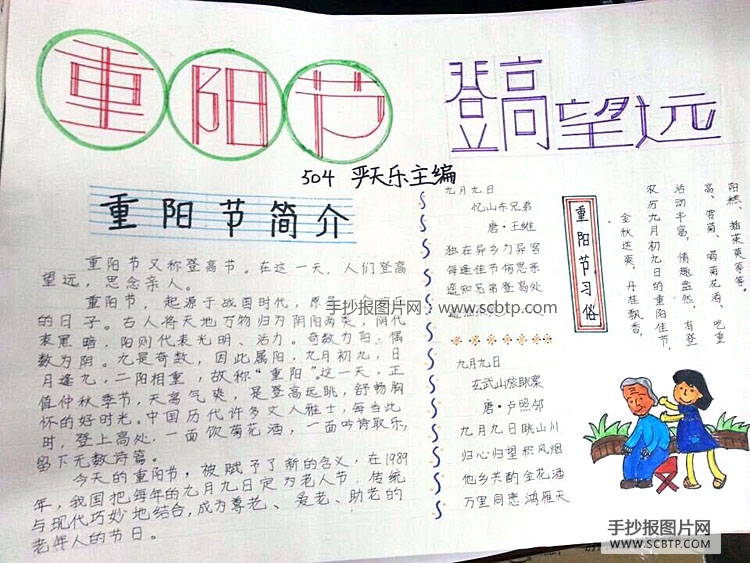 重阳节
登高望远
504 严天乐主编
重阳节简介
重阳节又称登高节。在这一天，人们登高
望远，思念亲人。
重阳节，起源于战国时代，原
的日子。古人将天地万物归为阴阳两类，阴代
表黑暗，阳则代表光明、活力。奇数为阳，偶
数为阴。九是奇数，因此属阳，九月初九，日
月逢九，二阳相重，故称“重阳”。这一天，正
值仲秋季节，天高气爽，是登高远眺，舒畅胸
怀的好时光。中国历代许多文人雅士，每当此
时，登上高处，一面饮菊花酒，一面吟诗取乐，
留下无数诗篇。
今天的重阳节，被赋予了新的含义，在1989
年，我国把每年的九月九日定为老人节，传统
与现代巧妙地结合，成为尊老、爱老、助老的
老年人的节日。
九月九日
忆山东兄弟
唐·王维
独在异乡为异客
每逢佳节倍思亲
遥知兄弟登高处
九月九日
玄武山旅眺
唐·卢照邻
九月九日眺山川
归心归望积风烟
他乡共酌金花酒
万里同悲鸿雁天
重阳节习俗
金秋送爽，丹桂飘香，
农历九月初九日的重阳佳节，
活动丰富，情趣盎然，有登
高、赏菊、喝菊花酒、吃重
阳糕、插茱萸等等。
手抄报图片网：www.scbtp.com
手抄报图片网
WWW.SCBTP.COM